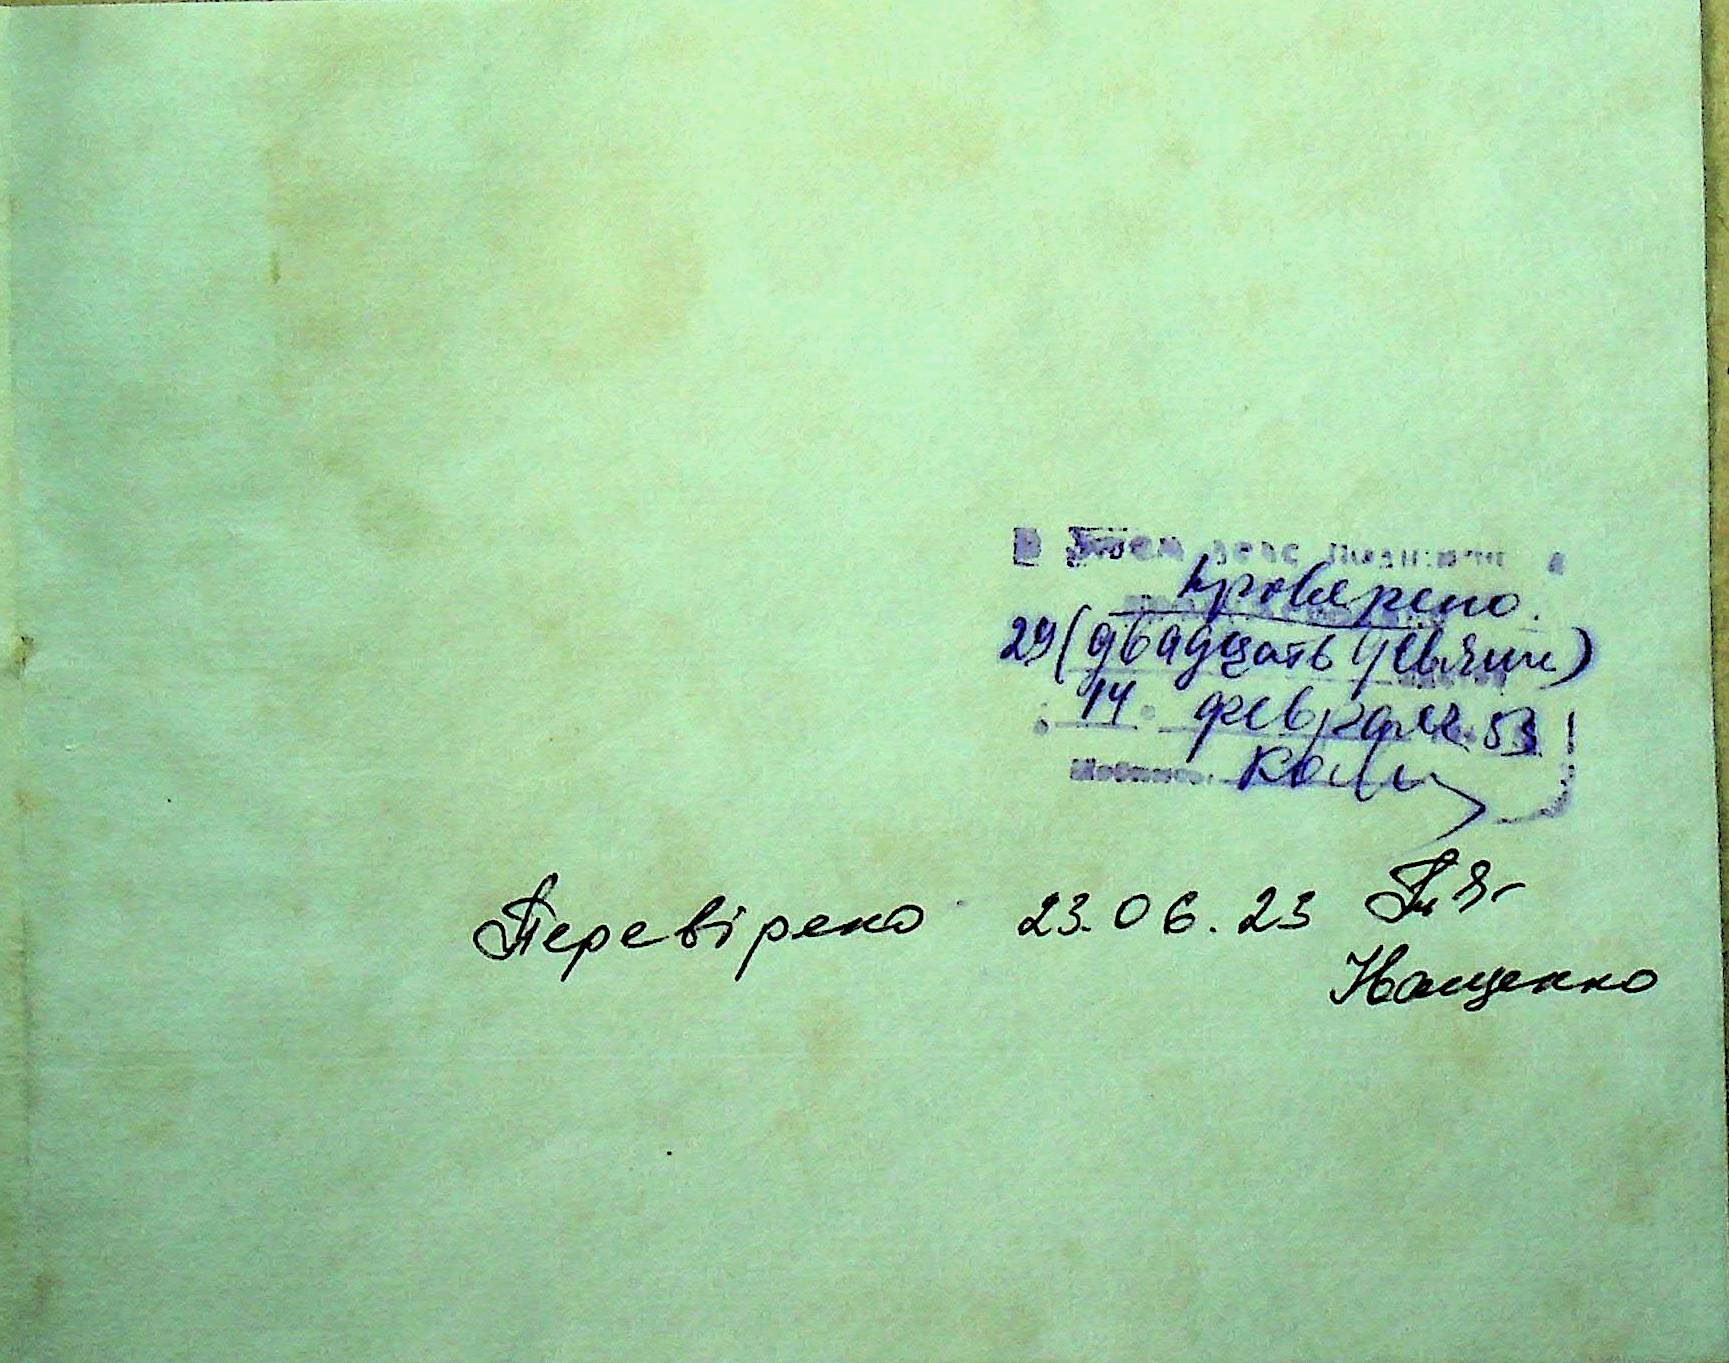 В этом деле подшито и
проверено.
29 (двадцать девять)
14 февраля 53
Перевірено 23.06.23
Іващенко